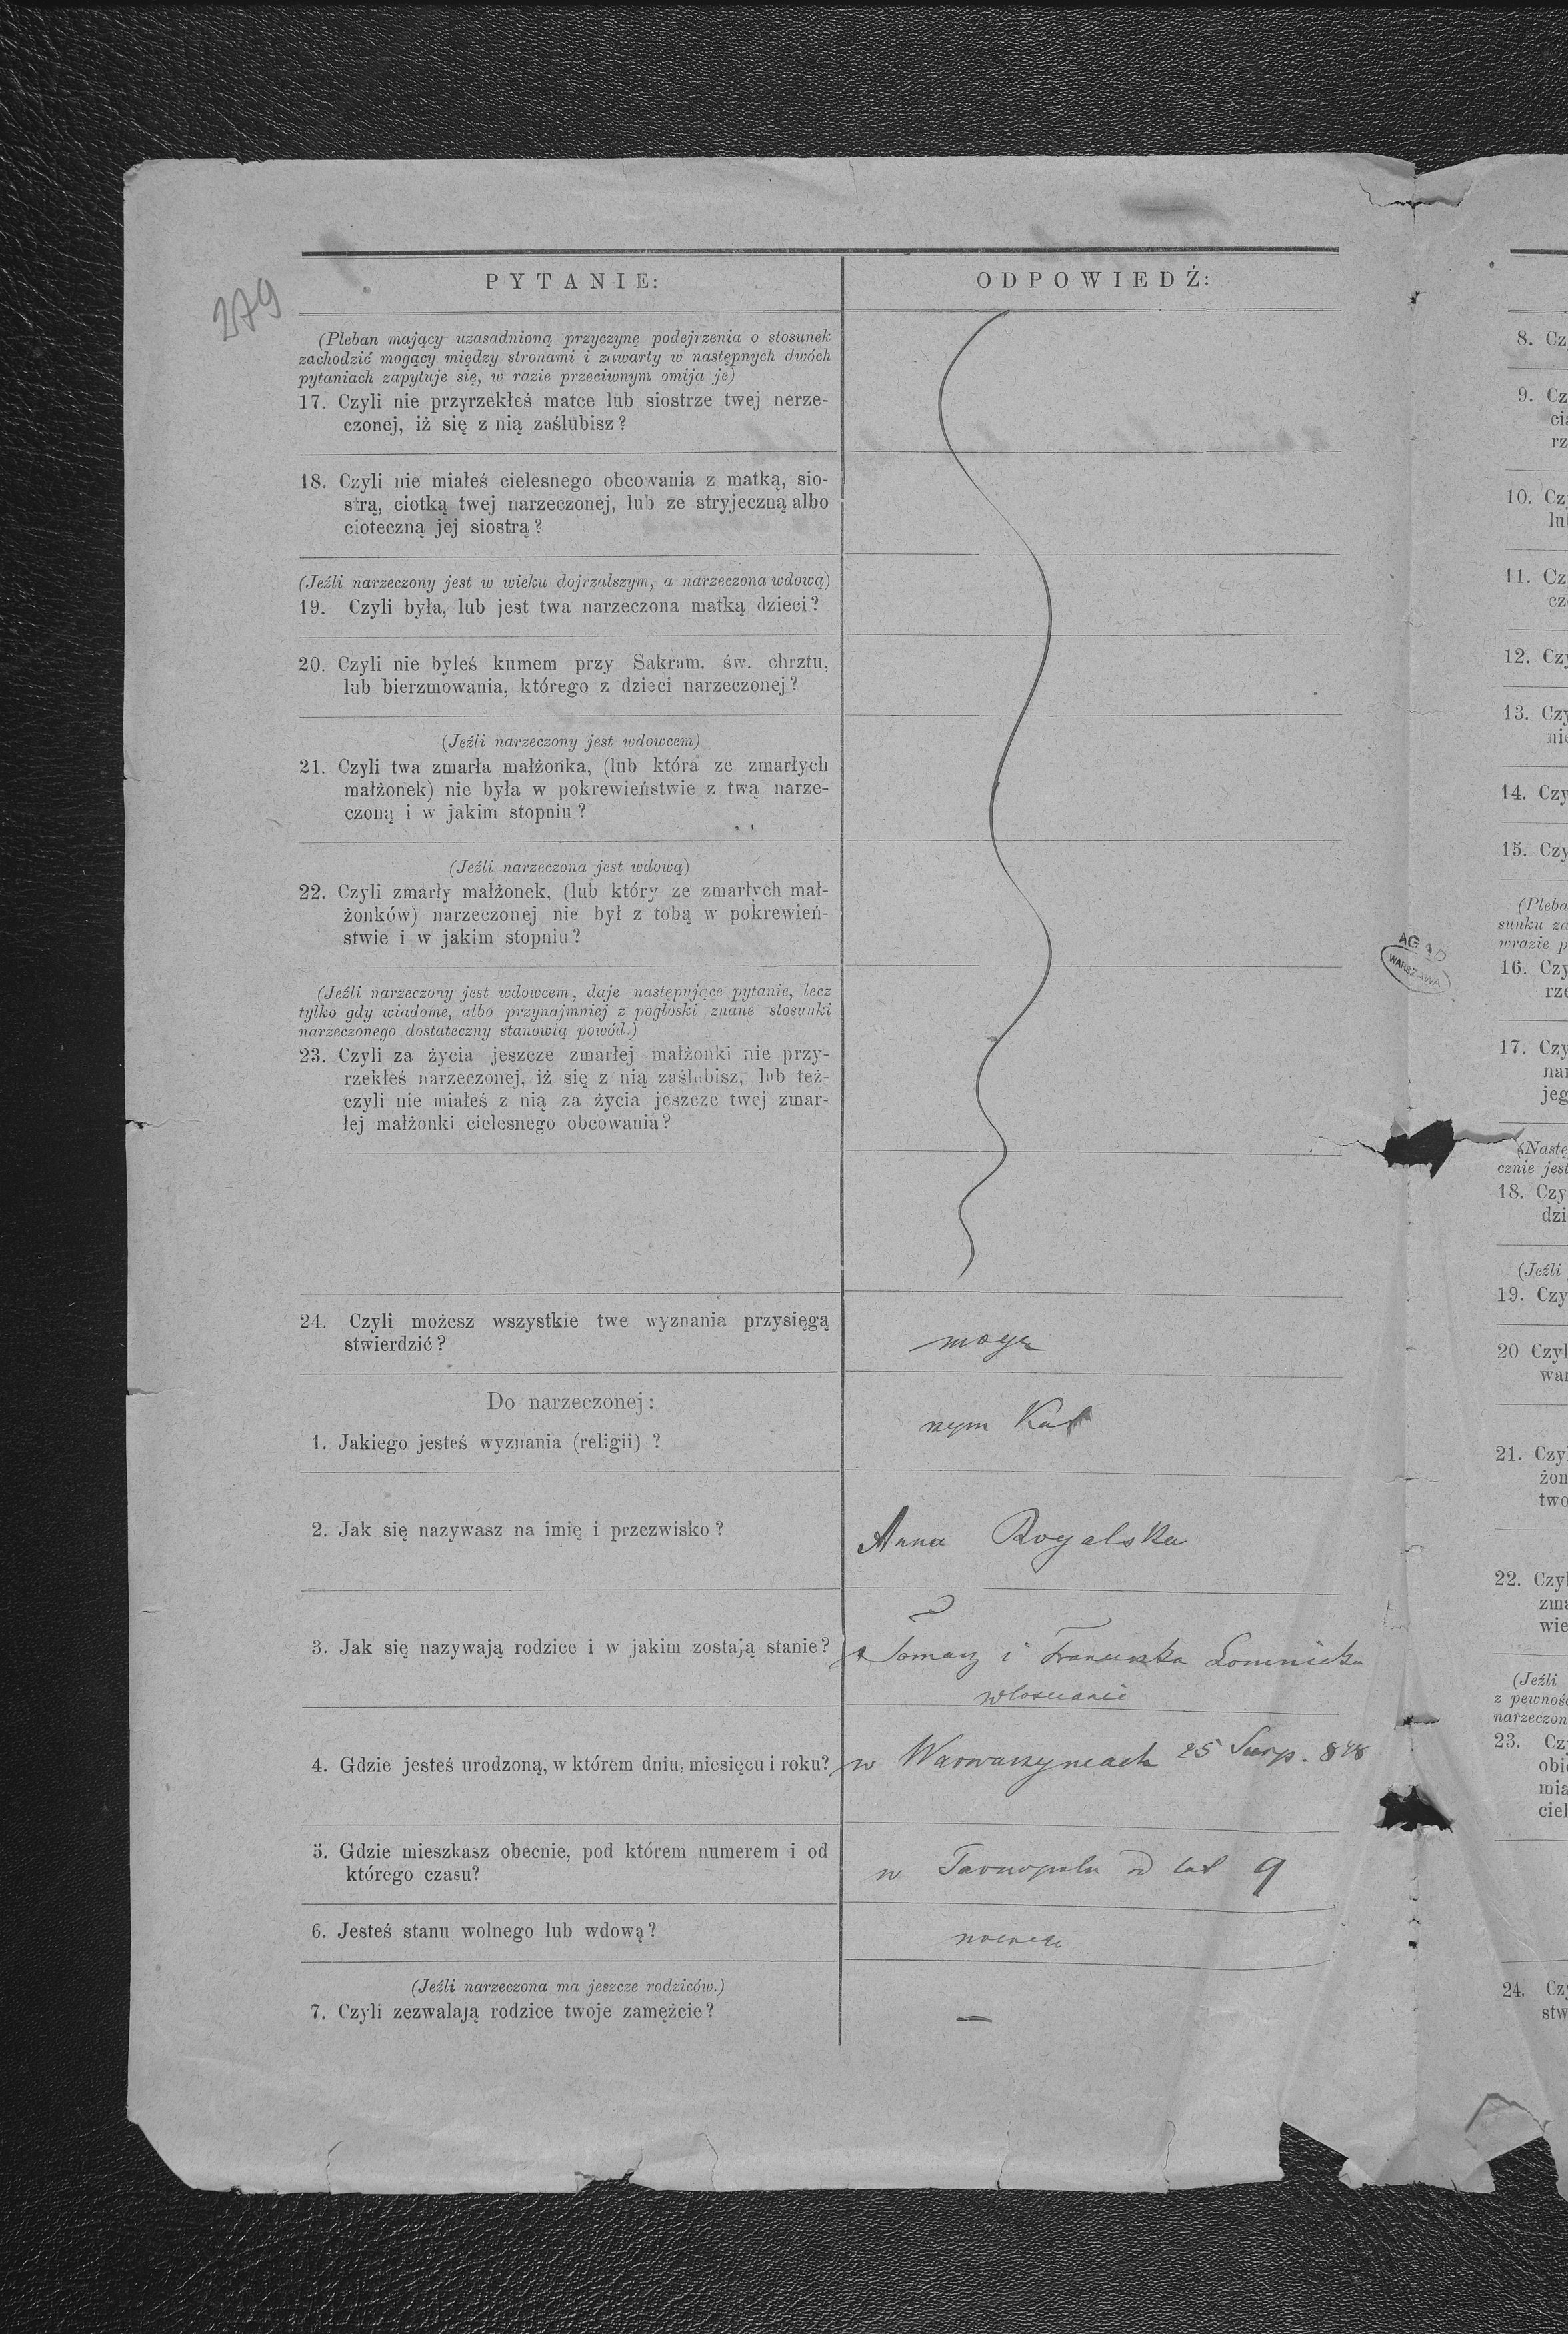 279
PYTANIE:
ODPOWIEDŹ:
(Pleban mający uzasadnioną przyczynę podejrzenia o stosunek
zachodzić mogący między stronami i zawarty w następnych dwóch
pytaniach zapytuje się, w razie przeciwnym omija je)
17. Czyli nie przyrzekłeś matce lub siostrze twej nerze-
czonej, iż się z nią zaślubisz?
18. Czyli nie miałeś cielesnego obcowania z matką, sio-
strą, ciotką twej narzeczonej, lub ze stryjeczną albo
cioteczną jej siostrą?
(Jeźli narzeczony jest w wieku dojrzalszym, a narzeczona wdową)
19. Czyli była, lub jest twa narzeczona matką dzieci?
20. Czyli nie byleś kumem przy Sakram. św. chrztu,
lub bierzmowania, którego z dzieci narzeczonej?
(Jeźli narzeczony jest wdowcem)
21. Czyli twa zmarła małżonka, (lub która ze zmarłych
małżonek) nie była w pokrewieństwie z twą narze-
czoną i w jakim stopniu?
(Jeźli narzeczona jest wdową)
22. Czyli zmarły małżonek, (lub który ze zmarłych mał-
żonków) narzeczonej nie był z tobą w pokrewień-
stwie i w jakim stopniu?
(Jeźli narzeczony jest wdowcem, daje następujące pytanie, lecz
tylko gdy wiadome, albo przynajmniej z pogłoski znane stosunki
narzeczonego dostateczny stanowią powód.)
23. Czyli za życia jeszcze zmarłej małżonki nie przy-
rzekłeś narzeczonej, iż się z nią zaślubisz, lub też-
czyli nie miałeś z nią za życia jeszcze twej zmar-
łej małżonki cielesnego obcowania?
24. Czyli możesz wszystkie twe wyznania przysięgą
stwierdzić?
mogę
Do narzeczonej:
1. Jakiego jesteś wyznania (religii) ?
rzym Kat
2. Jak się nazywasz na imię i przezwisko?
Anna Rogalska
3. Jak się nazywają rodzice i w jakim zostają stanie?
Tomasz i Franciszka Łomnicka
włościanie
4. Gdzie jesteś urodzoną, w którem dniu, miesięcu i roku?
w Warwaryncach 25 Sierp. 848
5. Gdzie mieszkasz obecnie, pod którem numerem i od
którego czasu?
w Tarnopolu od lat 9
6. Jesteś stanu wolnego lub wdową?
(Jeźli narzeczona ma jeszcze rodziców.)
7. Czyli zezwalają rodzice twoje zamężcie?
—
AGAD
WARSZAWA
8. Cz
9. Cz
cia
rz
10. Cz
lu
11. Cz
cz
12. Czy
13. Czy
nie
14. Czy
15. Czy
(Pleba
sunku za
wrazie p
16. Czy
rze
17. Czy
nar
jeg
(Nastę
cznie jest
18. Czy
dzi
(Jeźli
19. Czy
20 Czyl
war
21. Czy
żon
two
22. Czyl
zma
wie
(Jeźli
z pewnoś
narzeczon
23. Cz
obie
mia
ciel
24. Czy
stw